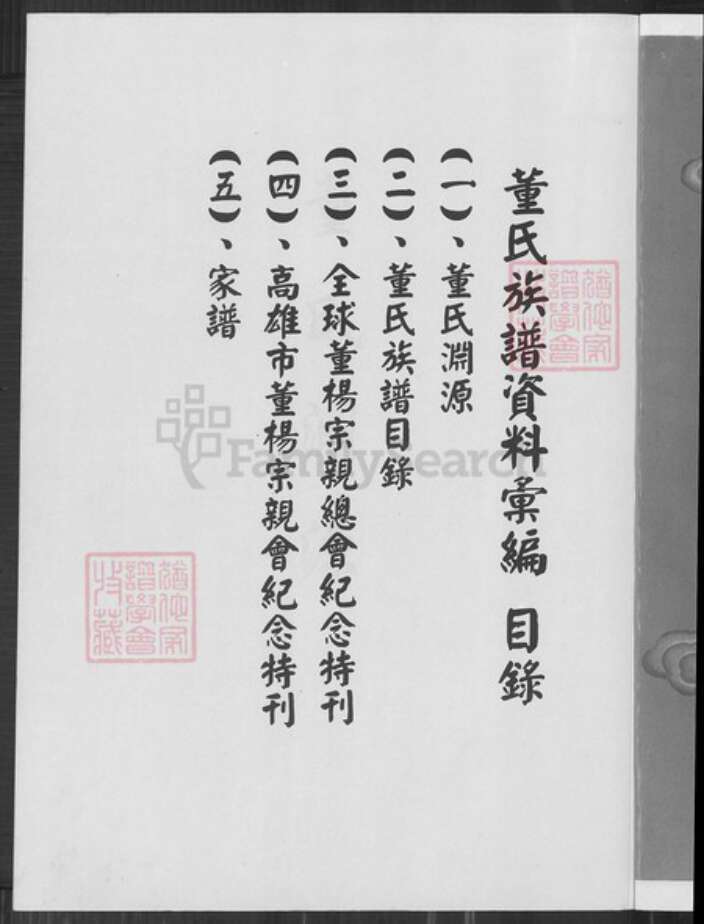 董氏族譜資料彙編 目錄
(一)、董氏淵源
(二)、董氏族譜目錄
(三)、全球董楊宗親總會紀念特刊
(四)、高雄市董楊宗親會紀念特刊
(五)、家譜
FamilySearch